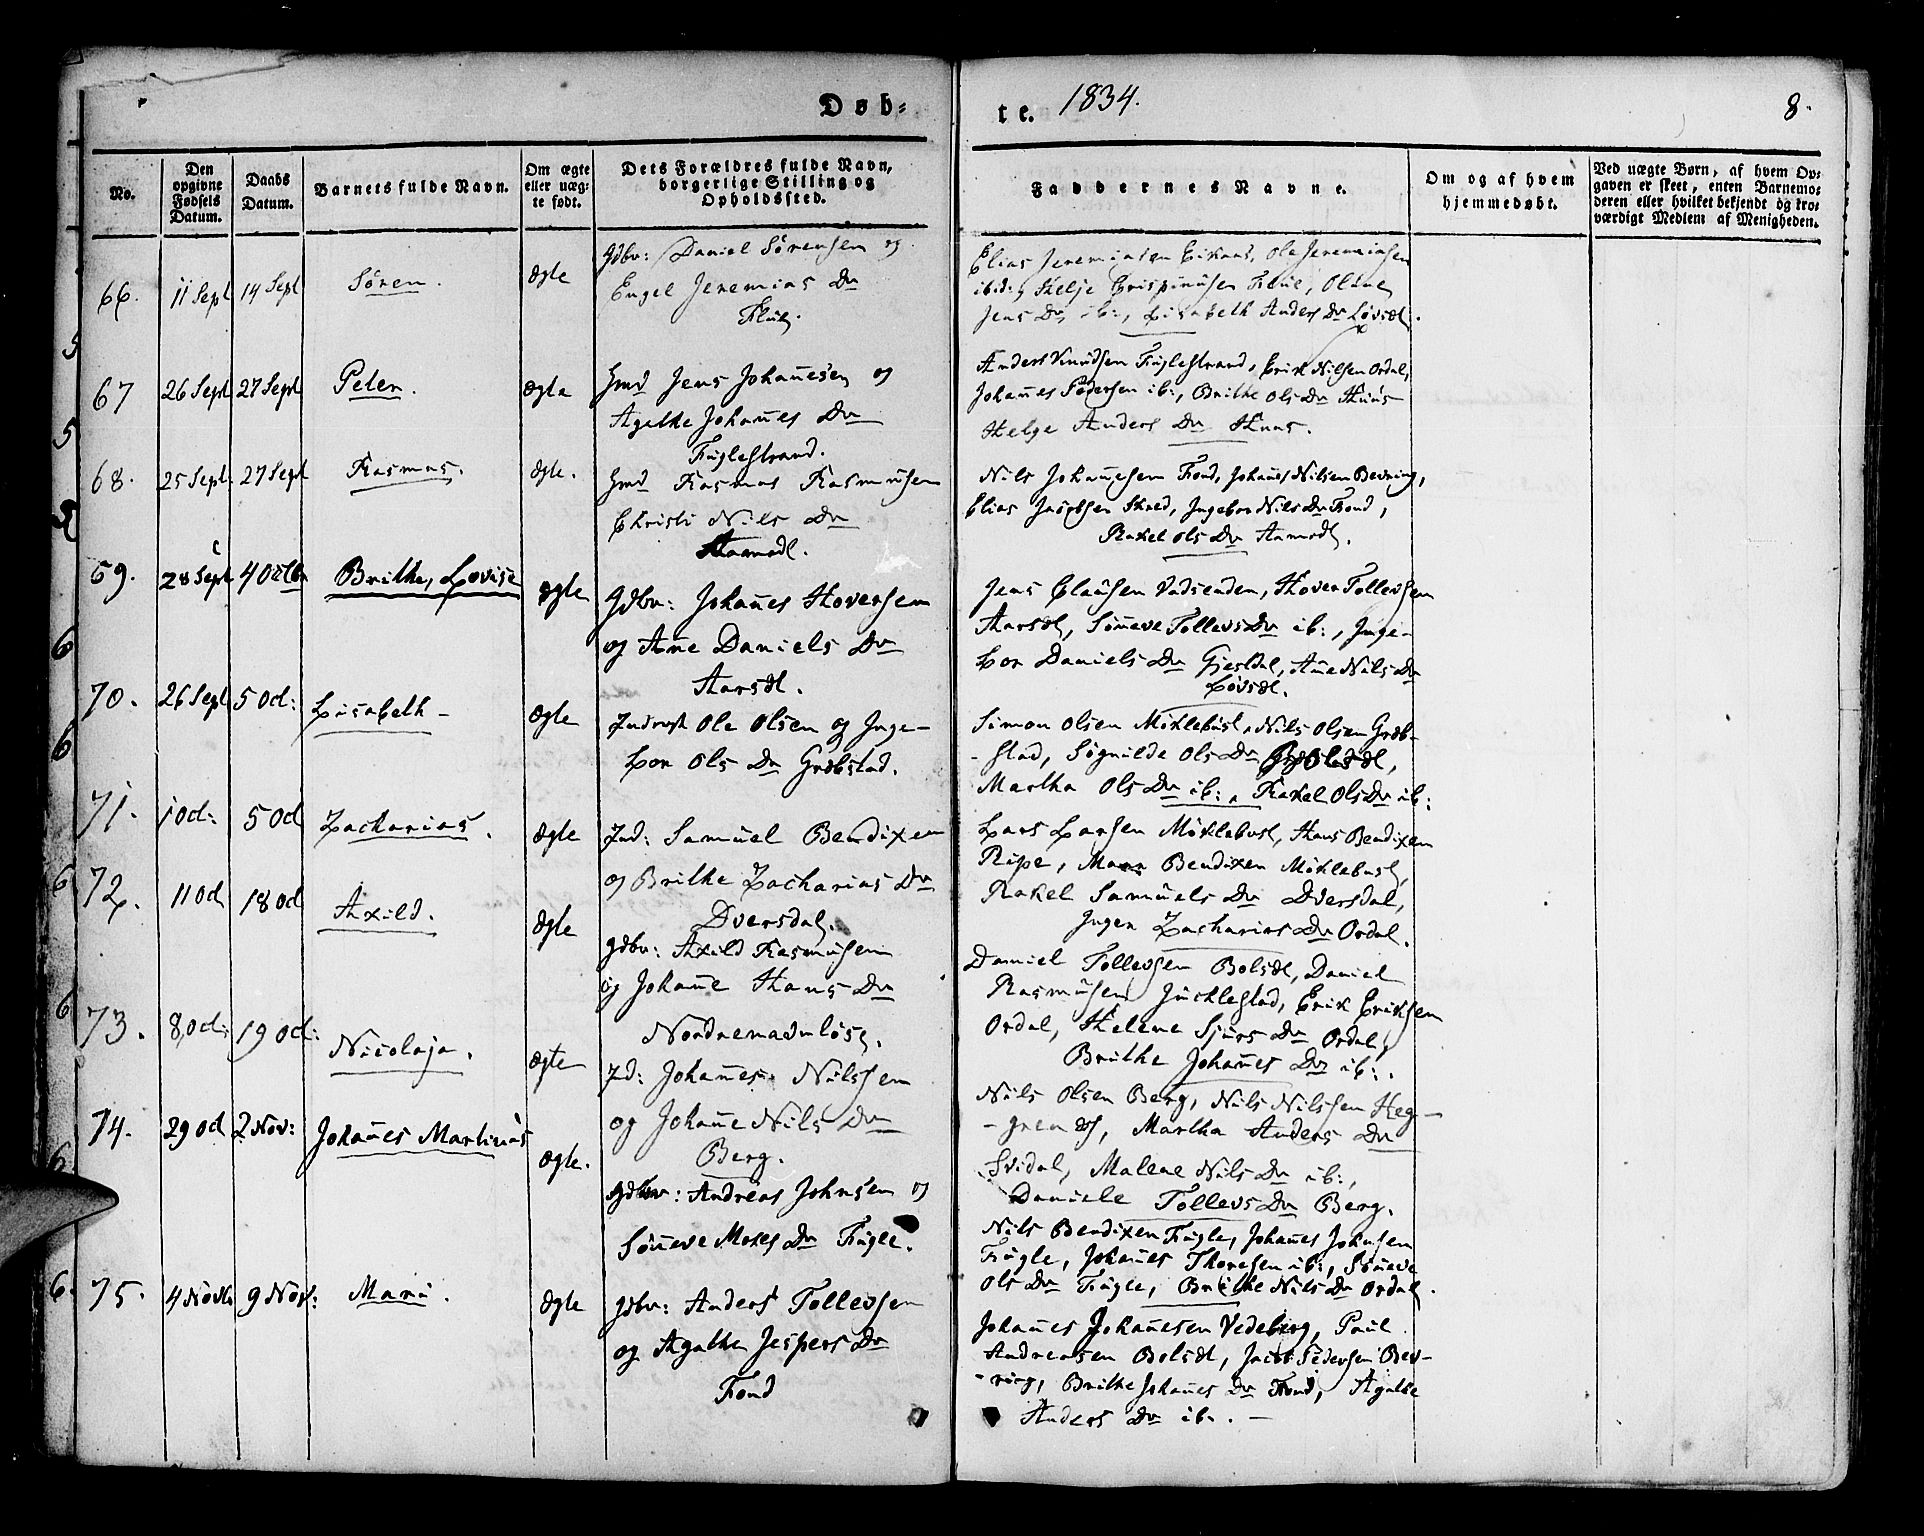 Døb-
te. 1834.
8.
No.
Den opgivne Fødsels Datum.
Daabs Datum.
Barnets fulde Navn.
Om ægte eller uægte født.
Dets Forældres fulde Navn, borgerlige Stilling og Opholdssted.
Faddernes Navne.
Om og af hvem hjemmedøbt.
Ved uægte Børn, af hvem Opgaven er skeet, enten Barnemoderen eller hvilket bekjendt og troværdigt Medlem af Menigheden.
66. 11 Sept 14 Sept Sören. Ægte
Gdbr: Daniel Sörensen og
Engel Jeremias Dr
Flue.
Elias Jeremiasen Eikaas, Ole Jeremiasen
ibid:, Helje Crispinusen Flue, Oline
Jens Dr ib:, Lisabeth Anders Dr Lövsdl.
67 26 Sept 27 Sept Peter. Ægte
Hmd Jens Johannesen og
Agathe Johannes Dr
Fuglestrand.
Anders Knudsen Fuglestrand, Erik Nilsen Ordal,
Johannes Pedersen ib:, Brithe Ols Dr Huus
Helge Anders Dr Huus.
68. 25 Sept: 27 Sept Rasmus. Ægte.
Hmd Rasmus Rasmusen
Christi Nils Dr
Aamodt.
Nils Johannesen Fond, Johans Nilsen Bevring,
Elias Jacobsen Skred, Ingebor Nils Dr Fond,
Rakel Ols Dr Aamodt.
69. 28 Sept 4 Octbr Brithe, Lovise Ægte
Gdbr: Johannes Hoversen
og Ane Daniels Dr
Aarsdl.
Jens Clausen Vadsenden, Hover Tollevsen
Aarsdl, Sönneve Tollevs Dr ib:, Inge-
bor Daniels Dr Gjesdal, Ane Nils Dr
Lövsdl.
70. 26 Sept 5 Oct: Lisabeth - Ægte
Inderst Ole Olsen og Inge-
bor Ols Dr Grebstad.
Simon Olsen Möklebust, Nils Olsen Greb-
-stad, Sögnilde Ols Dr
Martha Ols Dr ib:, Rakel Ols Dr ib:
71. 1 Oct: 5 Oct Zacharias. Ægte
Ind: Samuel Bendixen
og Brithe Zacharias Dr
Dversdal.
Lars Larsen Möklebust, Hans Bendixen
Ripe, Mons Bendixen Möklebust,
Rakel Samuels Dr Dversdal,
Inger Zacharias Dr Ordal.
72. 11 Oct 18 Oct Axild. Ægte
Gdbr: Axild Rasmusen
og Johanne Hans Dr
Daniel Tollevsen Bolsdl, Daniel
Rasmusen, Erik Eriksen
Ordal, Helene Sjurs Dr Ordal,
Brithe Johannes Dr ib:.
73. 8 Oct: 19 Oct: Nicolaja. Ægte
Id: Johannes Nilssen
og Johanne Nils Dr
Berg.
Nils Olsen Berg, Nils Nilssen Heg-
-, Martha Anders Dr
Svidal, Malene Nils Dr ib:,
Daniele Tollevs Dr Berg.
74. 29 Oct 2 Nov: Johannes Martinus Ægte.
Gdbr: Andreas Johnsen og
Sönneve Moses Dr Fugle.
Nils Bendixen Fugle, Johannes Johnsen
Fugle, Johannes Thoresen ib:, Sönneve
Ols Dr Fugle, Brithe Nils Dr Ordal.
75. 4 Novb: 9 Nov: Mari. Ægte
Gdbr: Anders Tollevsen
og Agathe Jespers Dr
Fond
Johannes Johannesen Vedeberg, Paul
Andreasen Bolsdl, Jacob Pedersen Bev-
-ring, Brithe Johannes Dr Fond, Agathe
Anders Dr ib. -